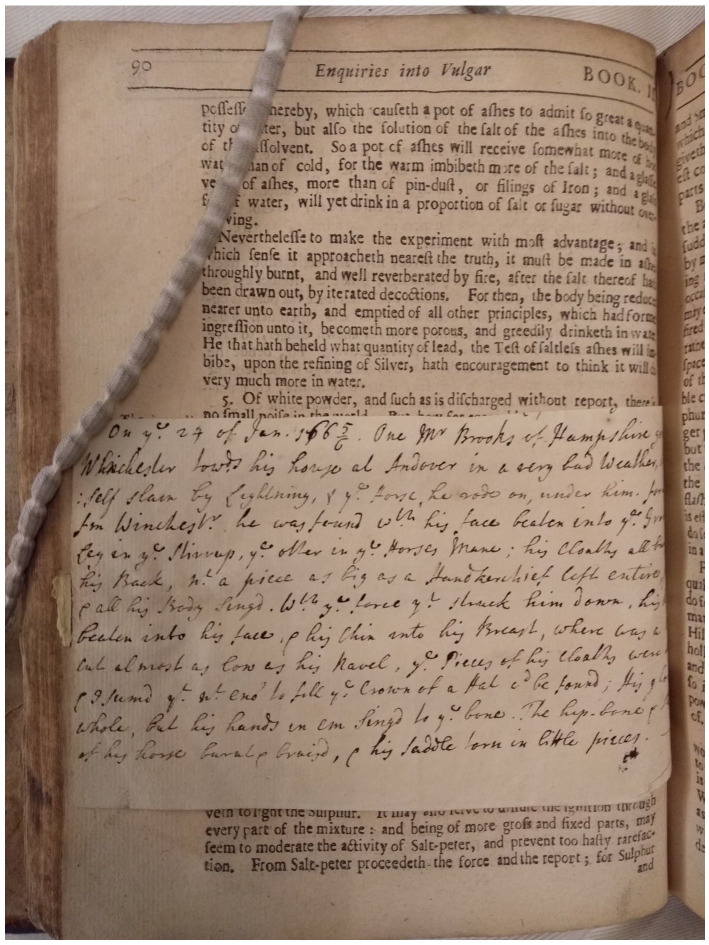 90 Enquiries into Vulgar BOOK. II
possess hereby, which causeth a pot of ashes to admit so great a quan
tity o ter, but also the solution of the salt of the ashes into the body
of th ssolvent. So a pot of ashes will receive somewhat more of hot
wat han of cold, for the warm imbibeth more of the salt; and a glasse
ve of ashes, more than of pin-dust, or filings of Iron; and a glasse
f of water, will yet drink in a proportion of salt or sugar without over
wing.
Neverthelesse to make the experiment with most advantage; and in
which sense it approacheth nearest the truth, it must be made in ashe
throughly burnt, and well reverberated by fire, after the salt thereof ha
been drawn out, by iterated decoctions. For then, the body being reduce
nearer unto earth, and emptied of all other principles, which had forme
ingression unto it, becometh more porous, and greedily drinketh in wate
He that hath beheld what quantity of lead, the Test of saltless ashes will im
bibe, upon the refining of Silver, hath encouragement to think it will d
very much more in water.
5. Of white powder, and such as is discharged without report, there is
no small noise in the world. But how far
On yͤ. 24 of Jan. 166 5/6. One Mr Brooks of Hampshire
Whinchester towds his house at Andover in a very bad Weather,
:self slain by Lightning, & yͤ. Horse, he rode on, under him. for
fm Winchestr. he was found wth his face beaten into yͤ. Gr
Leg in yͤ. Stirrup, yͤ. other in yͤ. Horses Mane; his Cloaths all
his Back, nt. a piece as big as a Handkerchief left entire,
& all his Body Singd. Wth yͤ. force yt. struck him down, his
beaten into his face, & his Chin into his Breast, where was a
cut almost as low as his Navel, yͤ. Pieces of his Cloaths were
yt. nt. eno' to fill yͤ. Crown of a Hat c'd be found; His
whole, but his hands in em Singd to yͤ. bone. The hip-bone &
of his horse burnt & bruisd, & his saddle torn in little pieces.
veth to light the Sulphur. It may also serve to diffuse the ignition through
every part of the mixture: and being of more gross and fixed parts, may
seem to moderate the activity of Salt-peter, and prevent too hasty rarefac-
tion. From Salt-peter proceedeth the force and the report; for Sulphur
and